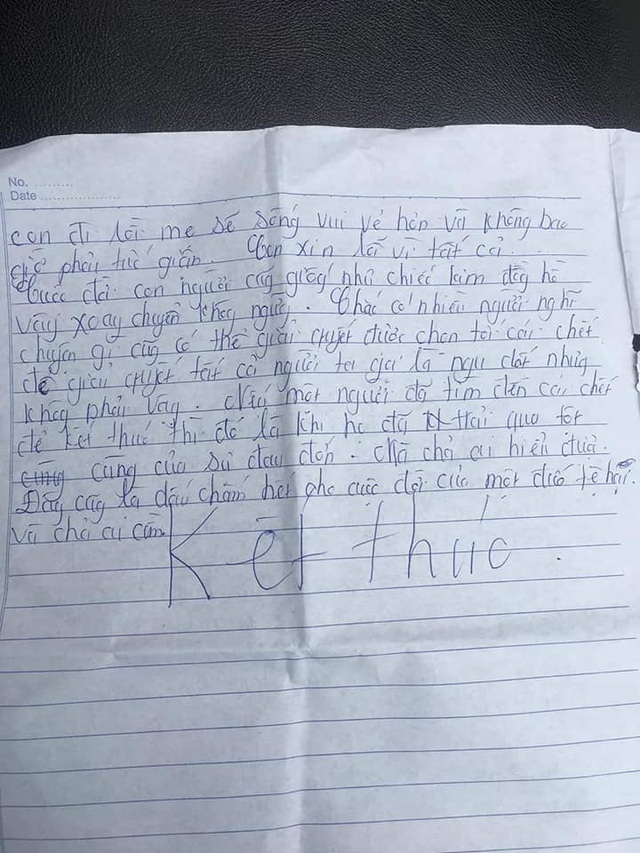 No. ..........
Date ....................
con đi rồi mẹ sẽ sống vui vẻ hơn và không bao
giờ phải tức giận. Con xin lỗi vì tất cả.
Cuộc đời con người cũng giống như chiếc kim đồng hồ
vậy xoay chuyển không ngừng. Chắc có nhiều người nghĩ
chuyện gì cũng có thể giải quyết được chọn tới cái chết
để giải quyết tất cả người ta gọi là ngu dốt nhưng
không phải vậy. Nếu một người đã tìm đến cái chết
để kết thúc thì đó là khi họ đã trải qua tột
cùng của sự đau đớn. Mà chả ai hiểu được.
Đây cũng là dấu chấm hết cho cuộc đời của một đứa tệ hại.
và chả ai cần
Kết thúc.